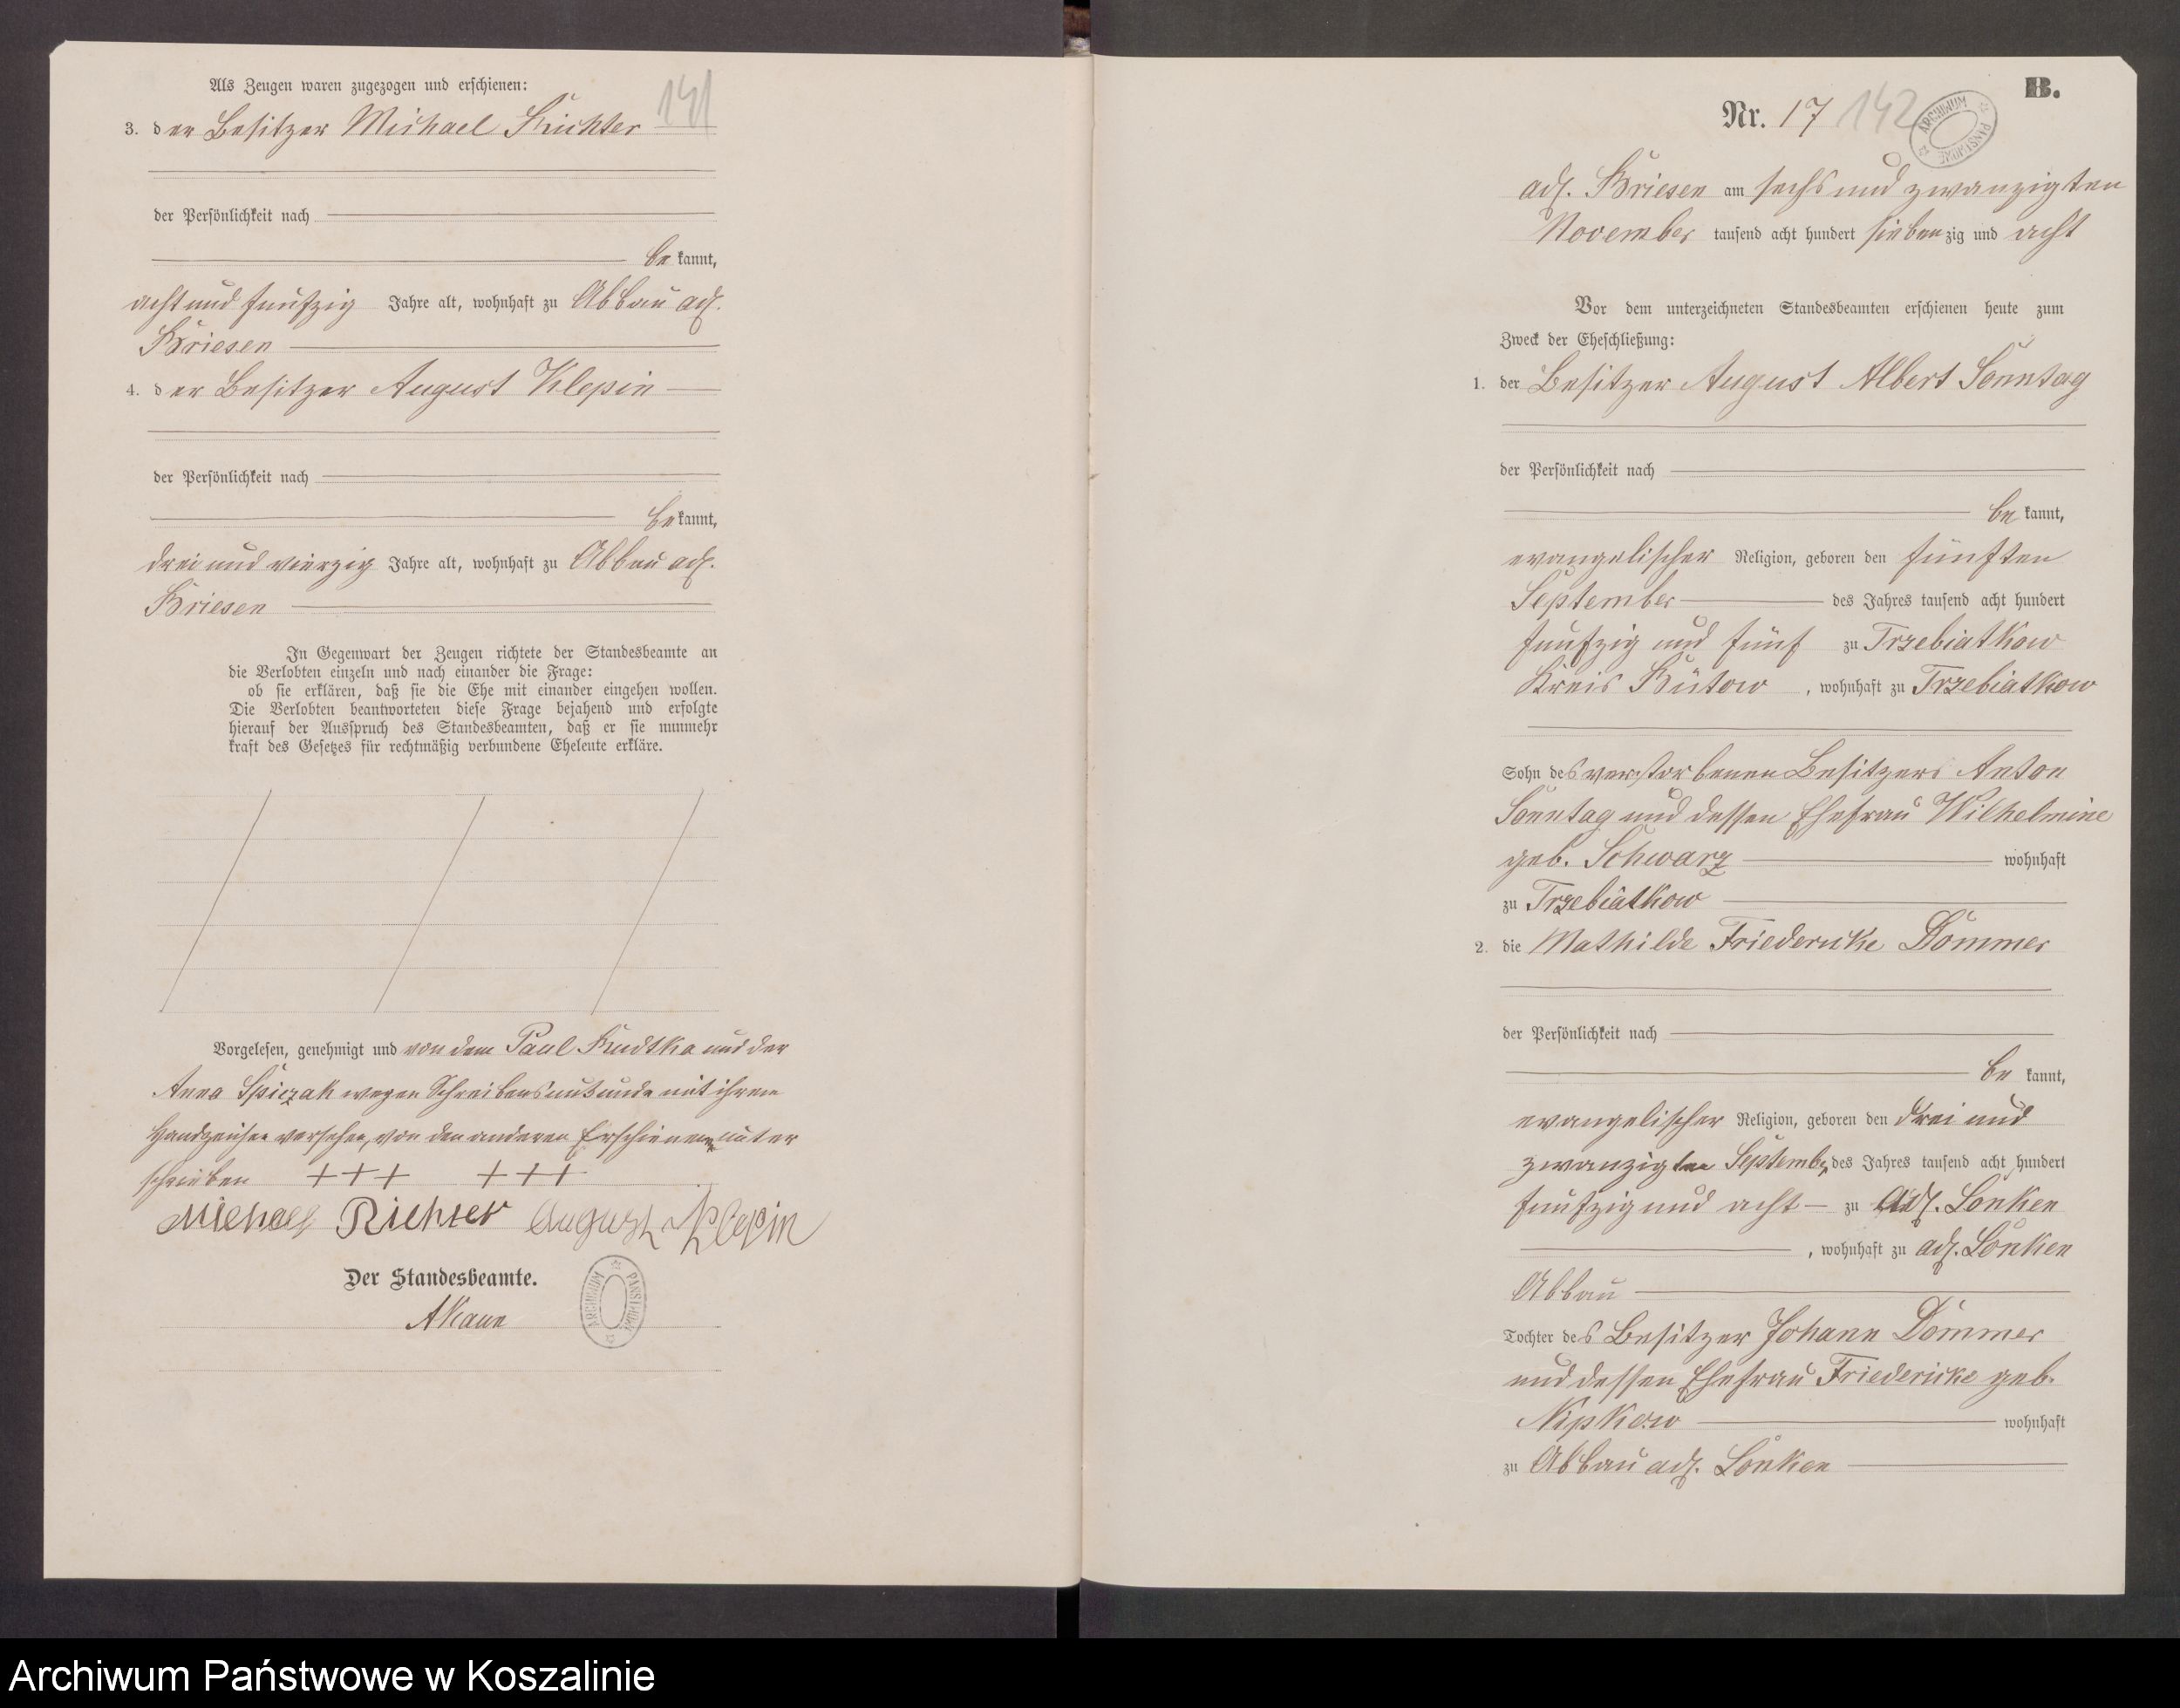 Als Zeugen waren zugezogen und erschienen:
141
3. der Besitzer Michael Richter
der Persönlichkeit nach
be kannt,
acht und funfzig Jahre alt, wohnhaft zu Abbau adl.
Briesen
4. der Besitzer August Klepin
der Persönlichkeit nach
be kannt,
drei und vierzig Jahre alt, wohnhaft zu Abbau adl.
Briesen
In Gegenwart der Zeugen richtete der Standesbeamte an
die Verlobten einzeln und nach einander die Frage:
ob sie erklären, daß sie die Ehe mit einander eingehen wollen.
Die Verlobten beantworteten diese Frage bejahend und erfolgte
hierauf der Ausspruch des Standesbeamten, daß er sie nunmehr
kraft des Gesetzes für rechtmäßig verbundene Eheleute erkläre.
Vorgelesen, genehmigt und von dem Paul Kudtka und der
Anna Spiczak wegen Schreibensunkunde mit ihrem
Handzeichen versehen, von den anderen Erschienenen unter
schrieben +++ +++
Michael Richter August Klepin
Der Standesbeamte.
ARCHIWUM PAŃSTWOWE
B.
Nr. 17 142
ARCHIWUM PAŃSTWOWE
adl. Briesen am sechs und zwanzigten
November tausend acht hundert siebenzig und acht
Vor dem unterzeichneten Standesbeamten erschienen heute zum
Zweck der Eheschließung:
1. der Besitzer August Albert Sonntag
der Persönlichkeit nach
be kannt,
evangelischer Religion, geboren den fünften
September des Jahres tausend acht hundert
funfzig und fünf zu Trzebiatkow
Kreis Bütow, wohnhaft zu Trzebiatkow
Sohn des verstorbenen Besitzers Anton
Sonntag und dessen Ehefrau Wilhelmine
geb. Schwarz wohnhaft
zu Trzebiatkow
2. die Mathilde Friedericke Dommer
der Persönlichkeit nach
be kannt,
evangelischer Religion, geboren den drei und
zwanzigten September des Jahres tausend acht hundert
funfzig und acht zu Adl. Lonken
, wohnhaft zu adl. Lonken
Abbau
Tochter des Besitzer Johann Dommer
und dessen Ehefrau Friedericke geb.
Nipkow wohnhaft
zu Abbau adl. Lonken
Archiwum Państwowe w Koszalinie